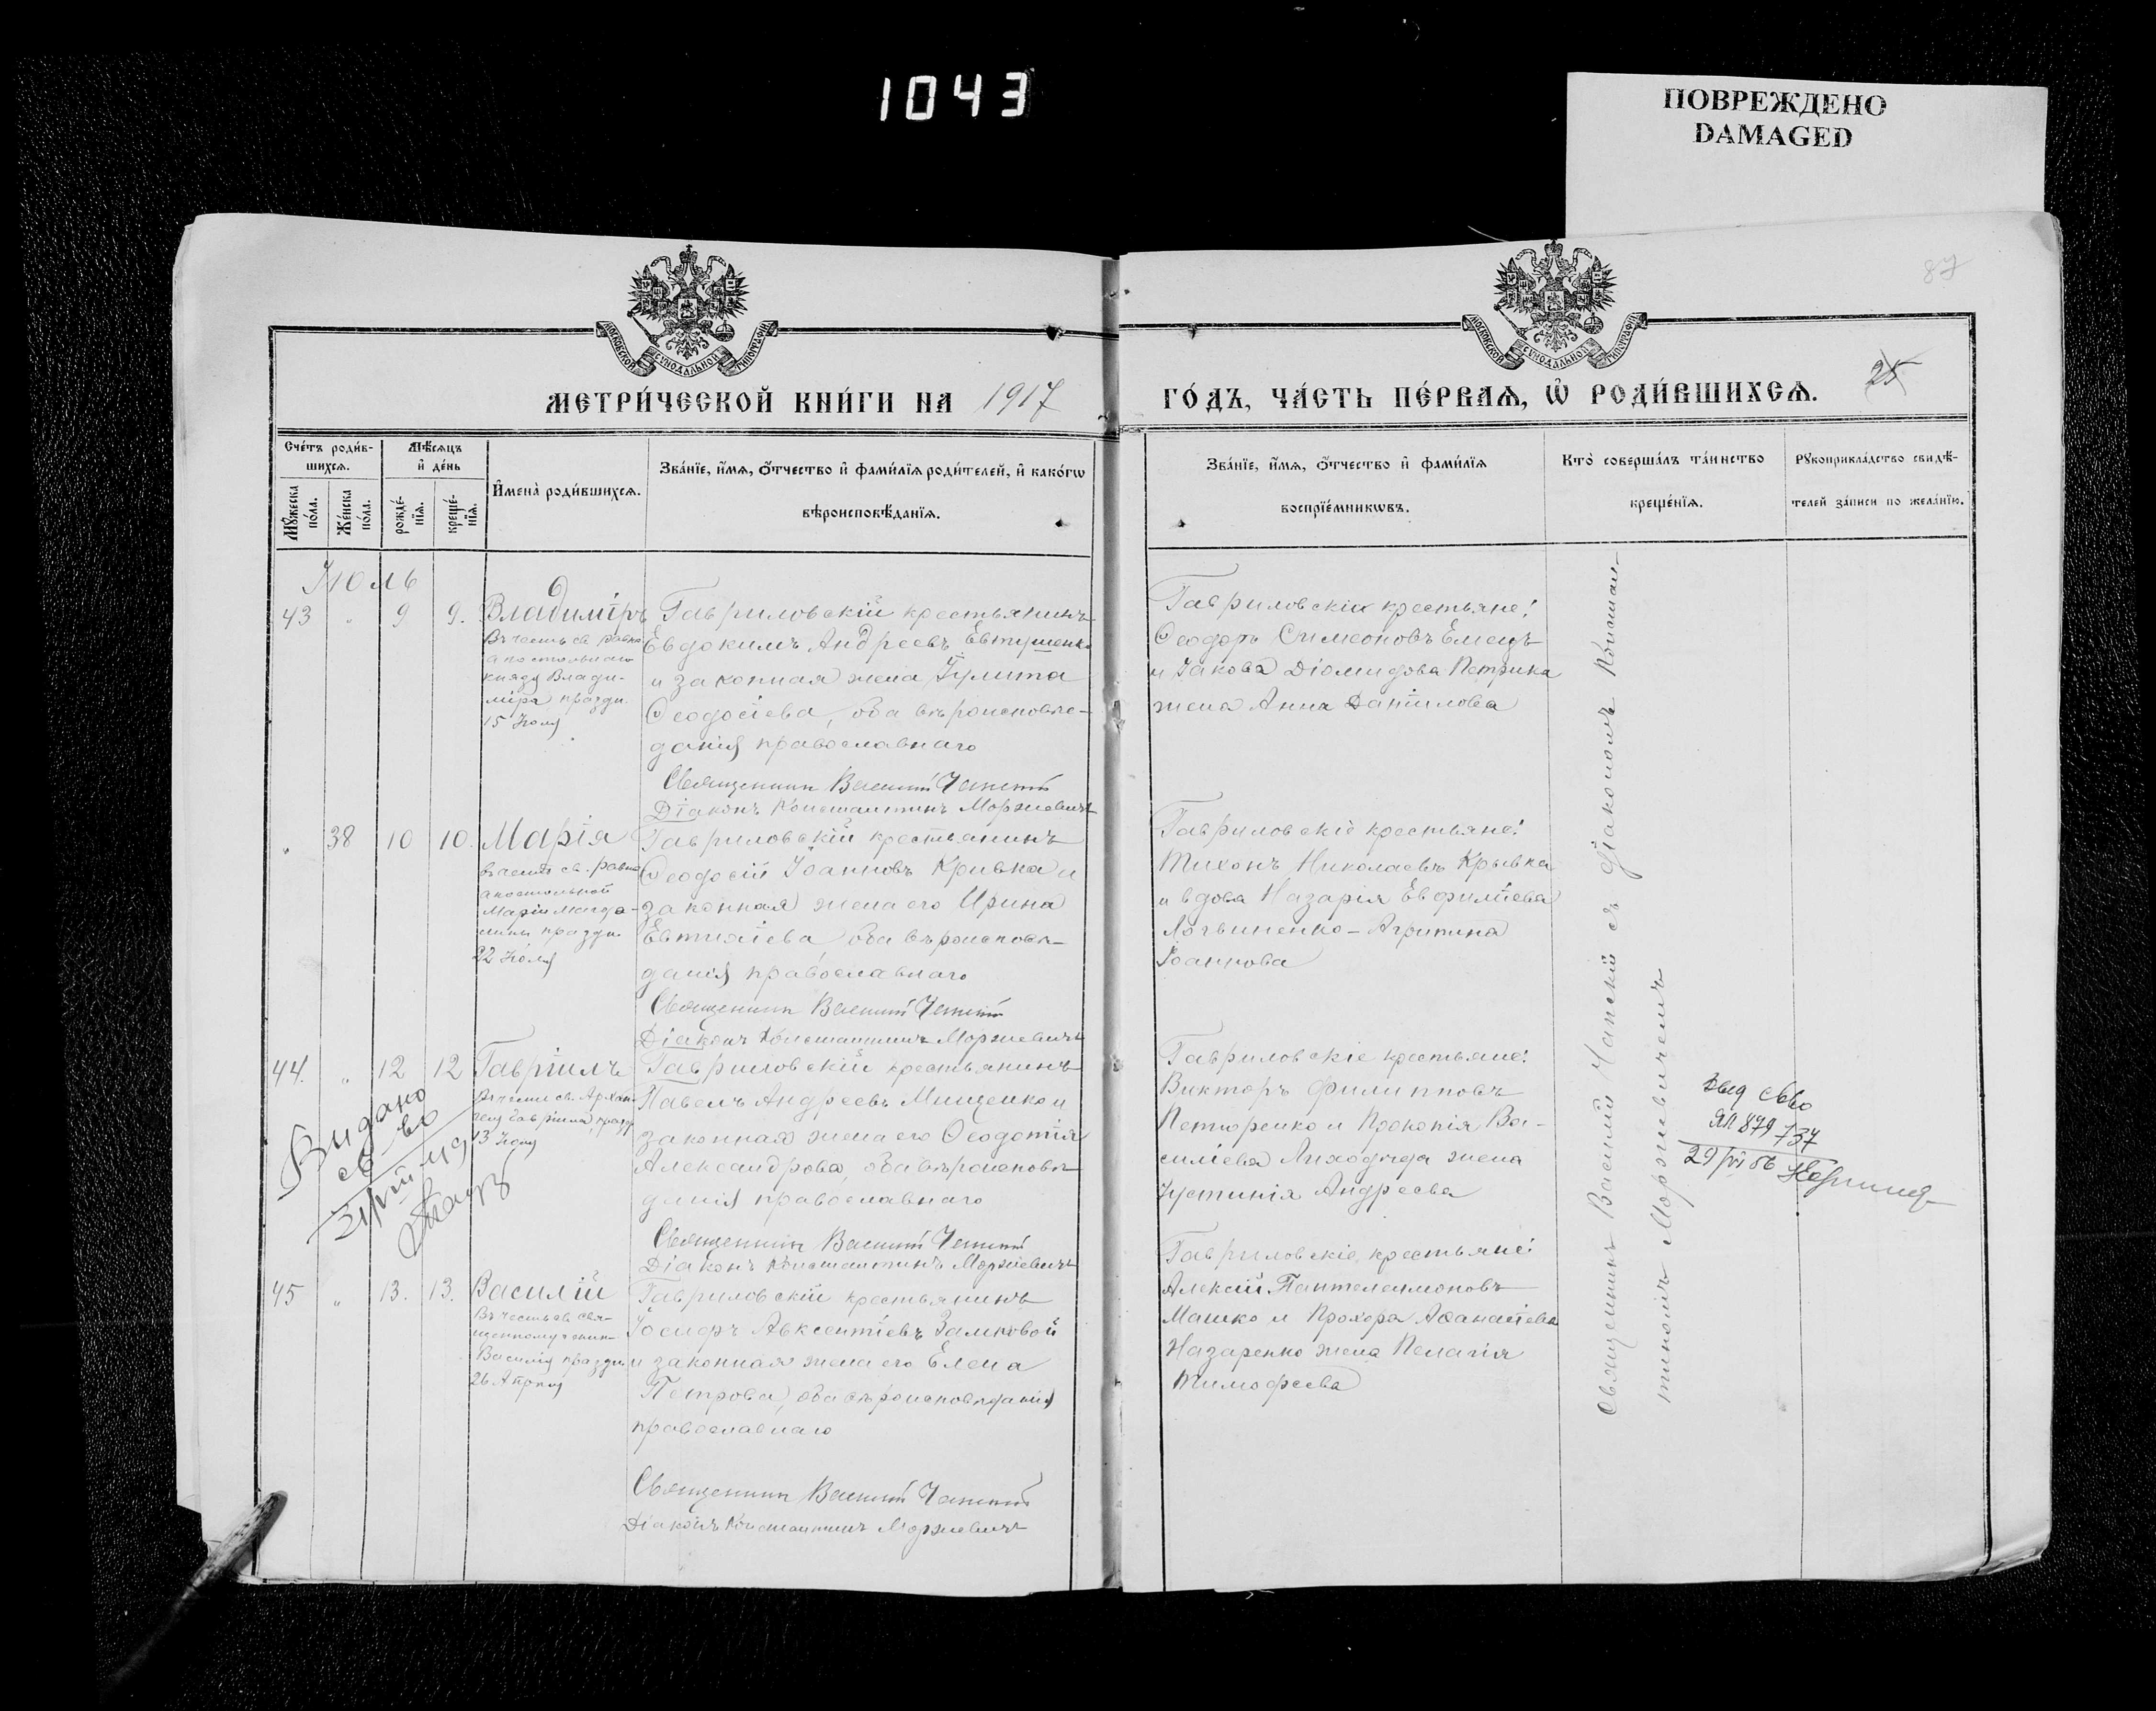 1043
ПОВРЕЖДЕНО
DAMAGED
87
МОСКОВСКОЙ СѴНОДАЛЬНОЙ ТИПОГРАФІИ
МОСКОВСКОЙ СѴНОДАЛЬНОЙ ТИПОГРАФІИ
МЕТРИ́ЧЕСКОЙ КНИ́ГИ НА 1917
ГО́ДЪ, ЧА́СТЬ ПЕ́РВАѦ, Ѡ҆ РОДИ́ВШИХСѦ.
25
Сче́тъ роди́в-
шихсѧ.
Мѣ́сѧцъ
и҆ де́нь
Мꙋ́жеска
по́ла.
Же́нска
по́ла.
рожде́-
нїѧ.
креще́-
нїѧ.
И҆мена̀ роди́вшихсѧ.
Зва́нїе, и҆́мѧ, ѻ҆́тчество и҆ фами́лїѧ роди́телей, и҆ како́гѡ
вѣроисповѣ́данїѧ.
Зва́нїе, и҆́мѧ, ѻ҆́тчество и҆ фами́лїѧ
воспрїе́мникѡвъ.
Кто̀ соверша́лъ та́инство
креще́нїѧ.
Рꙋкоприкла́дство свидѣ́-
телей за́писи по жела́нїю.
Июль
43 " 9 9. Владиміръ
Въ честь св. равно
апостольнаго
князя Влади-
міра праздн.
15 Июля
Гавриловскій крестьянинъ
Евдокимъ Андреевъ Евтушенко
и законная жена Іулита
Ѳеодосіева, оба вѣроисповѣ-
данія православнаго
Священникъ Василій Чапскій
Діаконъ Константинъ Моржевичъ
Гавриловскіе крестьяне:
Ѳеодоръ Симеоновъ Емецъ
и Іакова Діомидова Петрика
жена Анна Даніилова
" 38 10 10. Марія
въ честь св. равно
апостольной
Маріи Магда-
лины праздн.
22 Июля
Гавриловскій крестьянинъ
Ѳеодосій Іоанновъ Кривка и
законная жена его Ирина
Евтихіева оба вѣроисповѣ-
данія православнаго
Священникъ Василій Чапскій
Діаконъ Константинъ Моржевичъ
Гавриловскіе крестьяне:
Тихонъ Николаевъ Крывка
и вдова Назарія Евфиміева
Логвиненко - Агрипина
Іоаннова
44. " 12 12 Гавріилъ
Въ честь св. Архан-
гела Гавріила праздн
13 Июля
Видано
св-во
21/VIII-49
Гавриловскій крестьянинъ
Павелъ Андреевъ Мищенко и
законная жена его Ѳеодотія
Александрова, оба вѣроисповѣ-
данія православнаго
Священникъ Василій Чапскій
Діаконъ Константинъ Моржевичъ
Гавриловскіе крестьяне:
Викторъ Филипповъ
Петюренко и Прокопія Ва-
силіева Лиходѣда жена
Іустинія Андреева
Выд св-во
ЯП 879737
29/VI 56
45 " 13. 13. Василій
Въ честь св. свя-
щенномученик.
Василія праздн.
26 Апрѣля
Гавриловскій крестьянинъ
Іосифъ Авксентіевъ Замковой
и законная жена его Елена
Петрова, оба вѣроисповѣданія
православнаго
Священникъ Василій Чапскій
Діаконъ Константинъ Моржевичъ
Гавриловскіе крестьяне:
Алексій Пантелеимоновъ
Машко и Прохора Аѳанасіева
Назаренко жена Пелагія
Тимофеева
Священникъ Василій Чапскій съ діакономъ Констан-
тиномъ Моржевичемъ